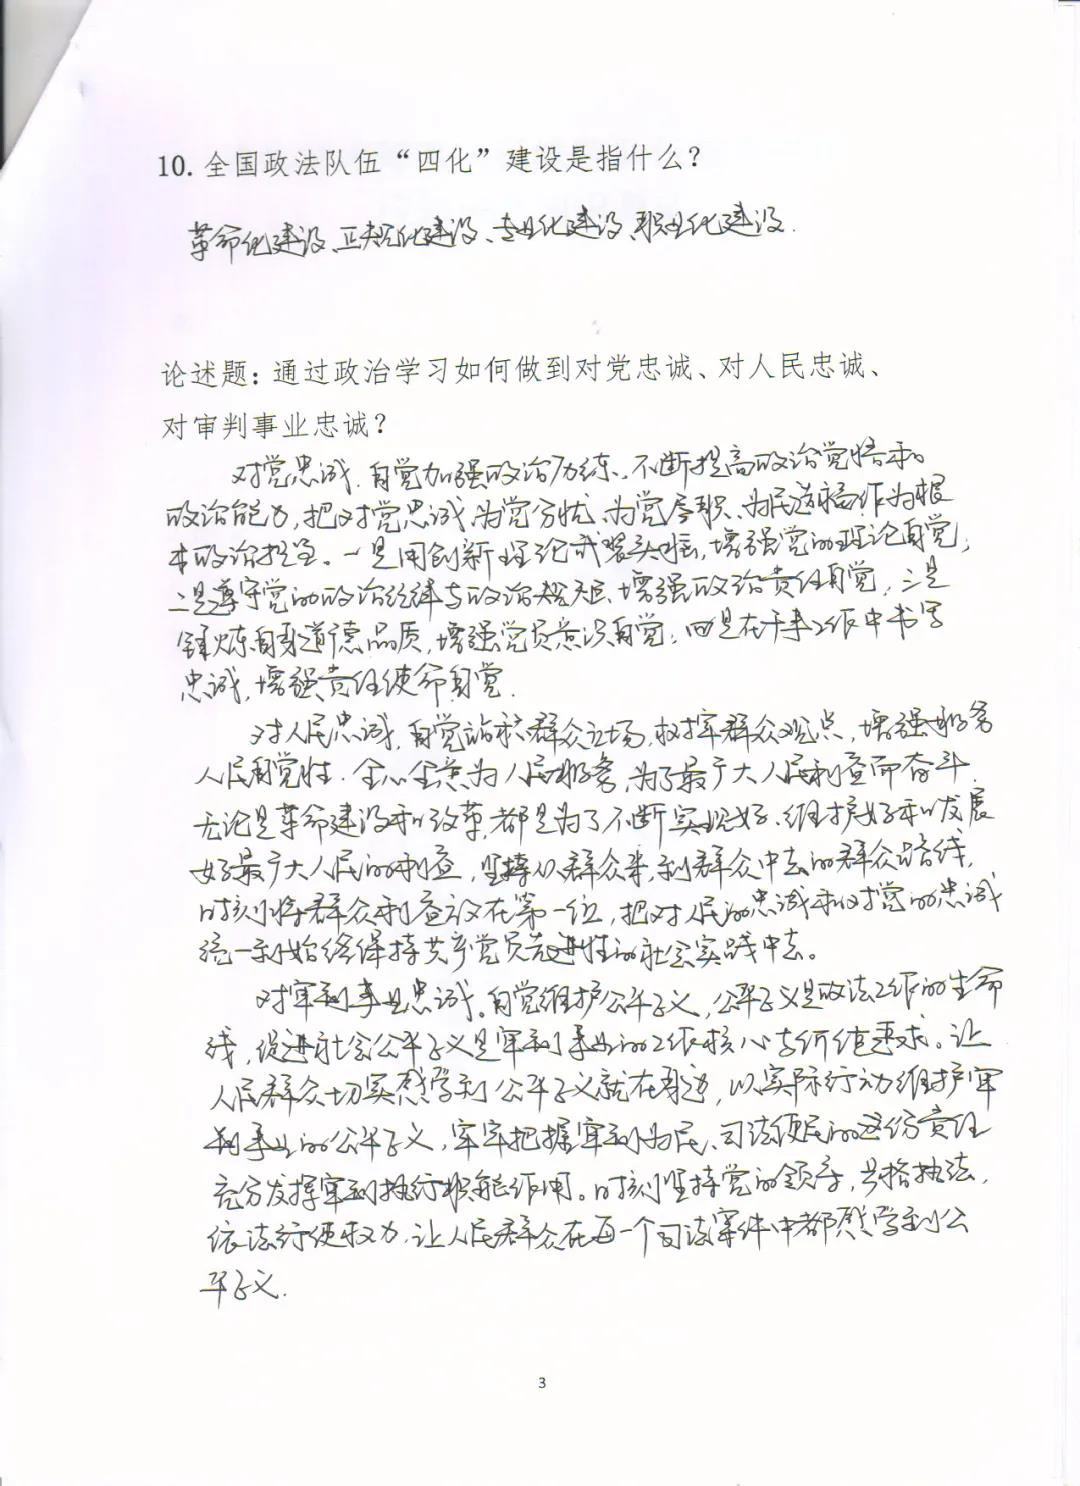 10. 全国政法队伍“四化”建设是指什么？
革命化建设、正规化建设、专业化建设、职业化建设.
论述题：通过政治学习如何做到对党忠诚、对人民忠诚、
对审判事业忠诚？
对党忠诚，自觉加强政治历练，不断提高政治觉悟和
政治能力，把对党忠诚、为党分忧、为党尽职、为民造福作为根
本政治担当。一是用创新理论武装头脑，增强党的理论自觉；
二是遵守党的政治纪律与政治规矩、增强政治责任自觉；三是
锤炼自身道德品质，增强党员意识自觉；四是在干事工作中书写
忠诚，增强责任使命自觉.
对人民忠诚，自觉站稳群众立场，树牢群众观点，增强服务
人民自觉性. 全心全意为人民服务，为了最广大人民利益而奋斗.
无论是革命建设和改革，都是为了不断实现好、维护好和发展
好最广大人民的利益，坚持从群众来，到群众中去的群众路线，
时刻将群众利益放在第一位，把对人民的忠诚和对党的忠诚
统一到始终保持共产党员先进性的社会实践中去。
对审判事业忠诚。自觉维护公平正义，公平正义是政法工作的生命
线，促进社会公平正义是审判事业的工作核心与价值要求。让
人民群众切实感受到公平正义就在身边，以实际行动维护审
判事业的公平正义，牢牢把握审判为民、司法便民的这份责任
充分发挥审判执行职能作用。时刻坚持党的领导，严格执法，
依法行使权力，让人民群众在每一个司法案件中都感受到公
平正义.
3